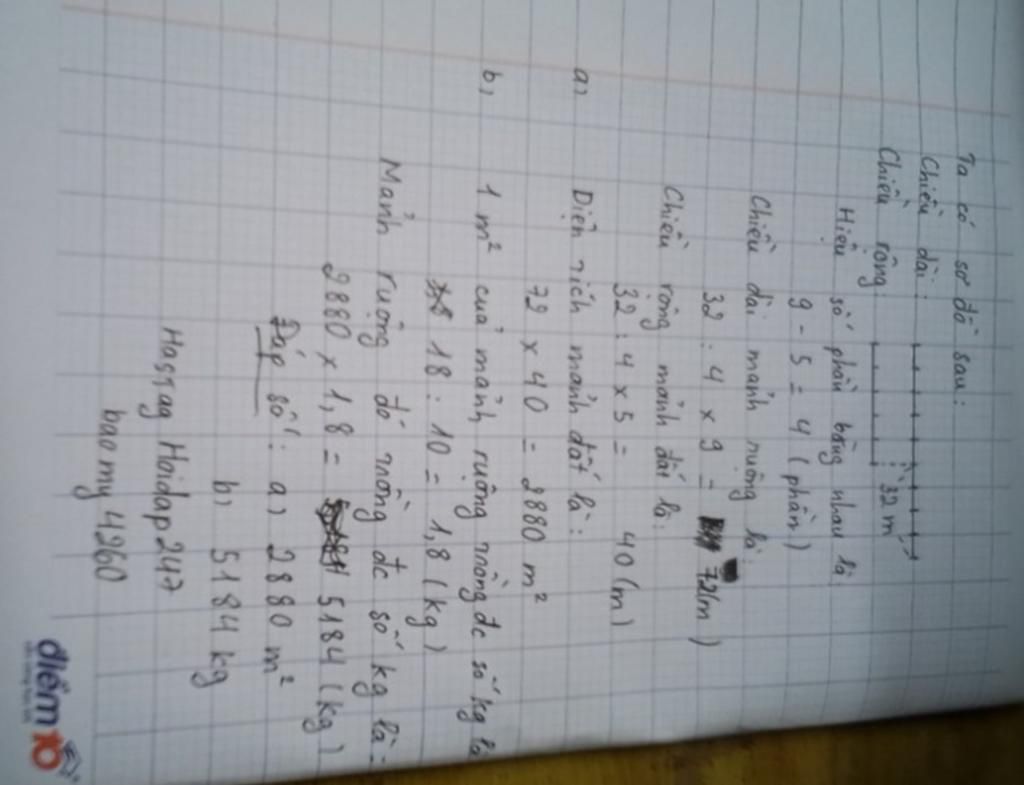 Ta có sơ đồ sau:
Chiều dài:
Chiều rộng:
32 m
Hiệu số phần bằng nhau là
9 - 5 = 4 (phần)
Chiều dài mảnh ruộng là:
32 : 4 x 9 = 72 (m)
Chiều rộng mảnh đất là:
32 : 4 x 5 = 40 (m)
a, Diện tích mảnh đất là:
72 x 40 = 2880 m²
b, 1 m² của mảnh ruộng trồng đc số kg là
18 : 10 = 1,8 (kg)
Mảnh ruộng đó trồng đc số kg là:
2880 x 1,8 = 5184 (kg)
Đáp số: a) 2880 m²
b) 5184 kg
Hastag Hoidap247
baomy4260
điểm 10